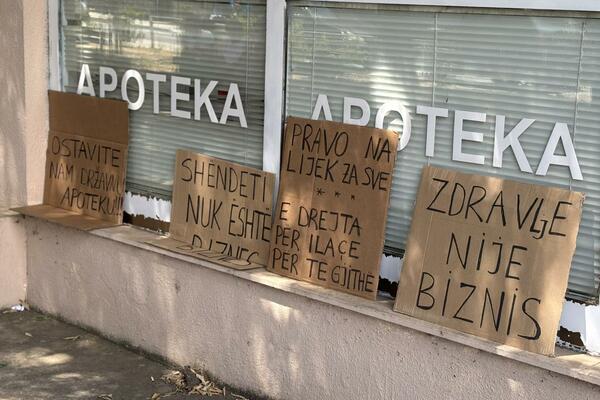 APOTEKA
APOTEKA
OSTAVITE
NAM DRŽAVNU
APOTEKU!!
SHENDETI
NUK ËSHTË
BIZNES
PRAVO NA
LIJEK ZA SVE
* * *
E DREJTA
PER ILAÇE
PER TE GJITHE
ZDRAVLJE
NIJE
BIZNIS